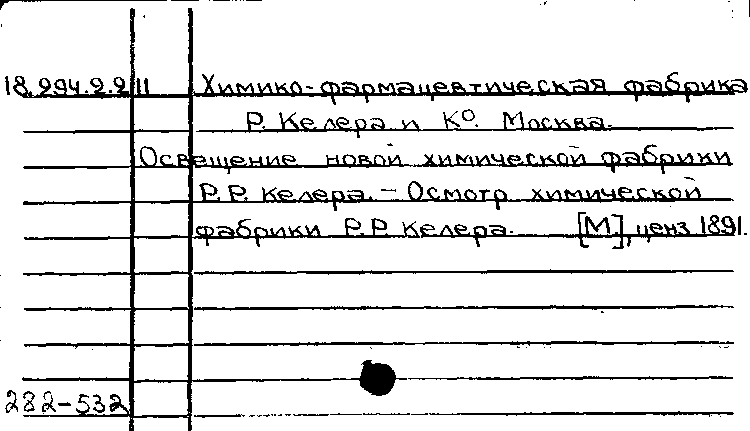 18.294.2.211 Химико-фармацевтическая фабрика
Р. Келера и К⁰. Москва.
Освещение новой химической фабрики
Р.Р. Келера. – Осмотр химической
фабрики Р.Р. Келера. [М.], ценз 1891.
282-532